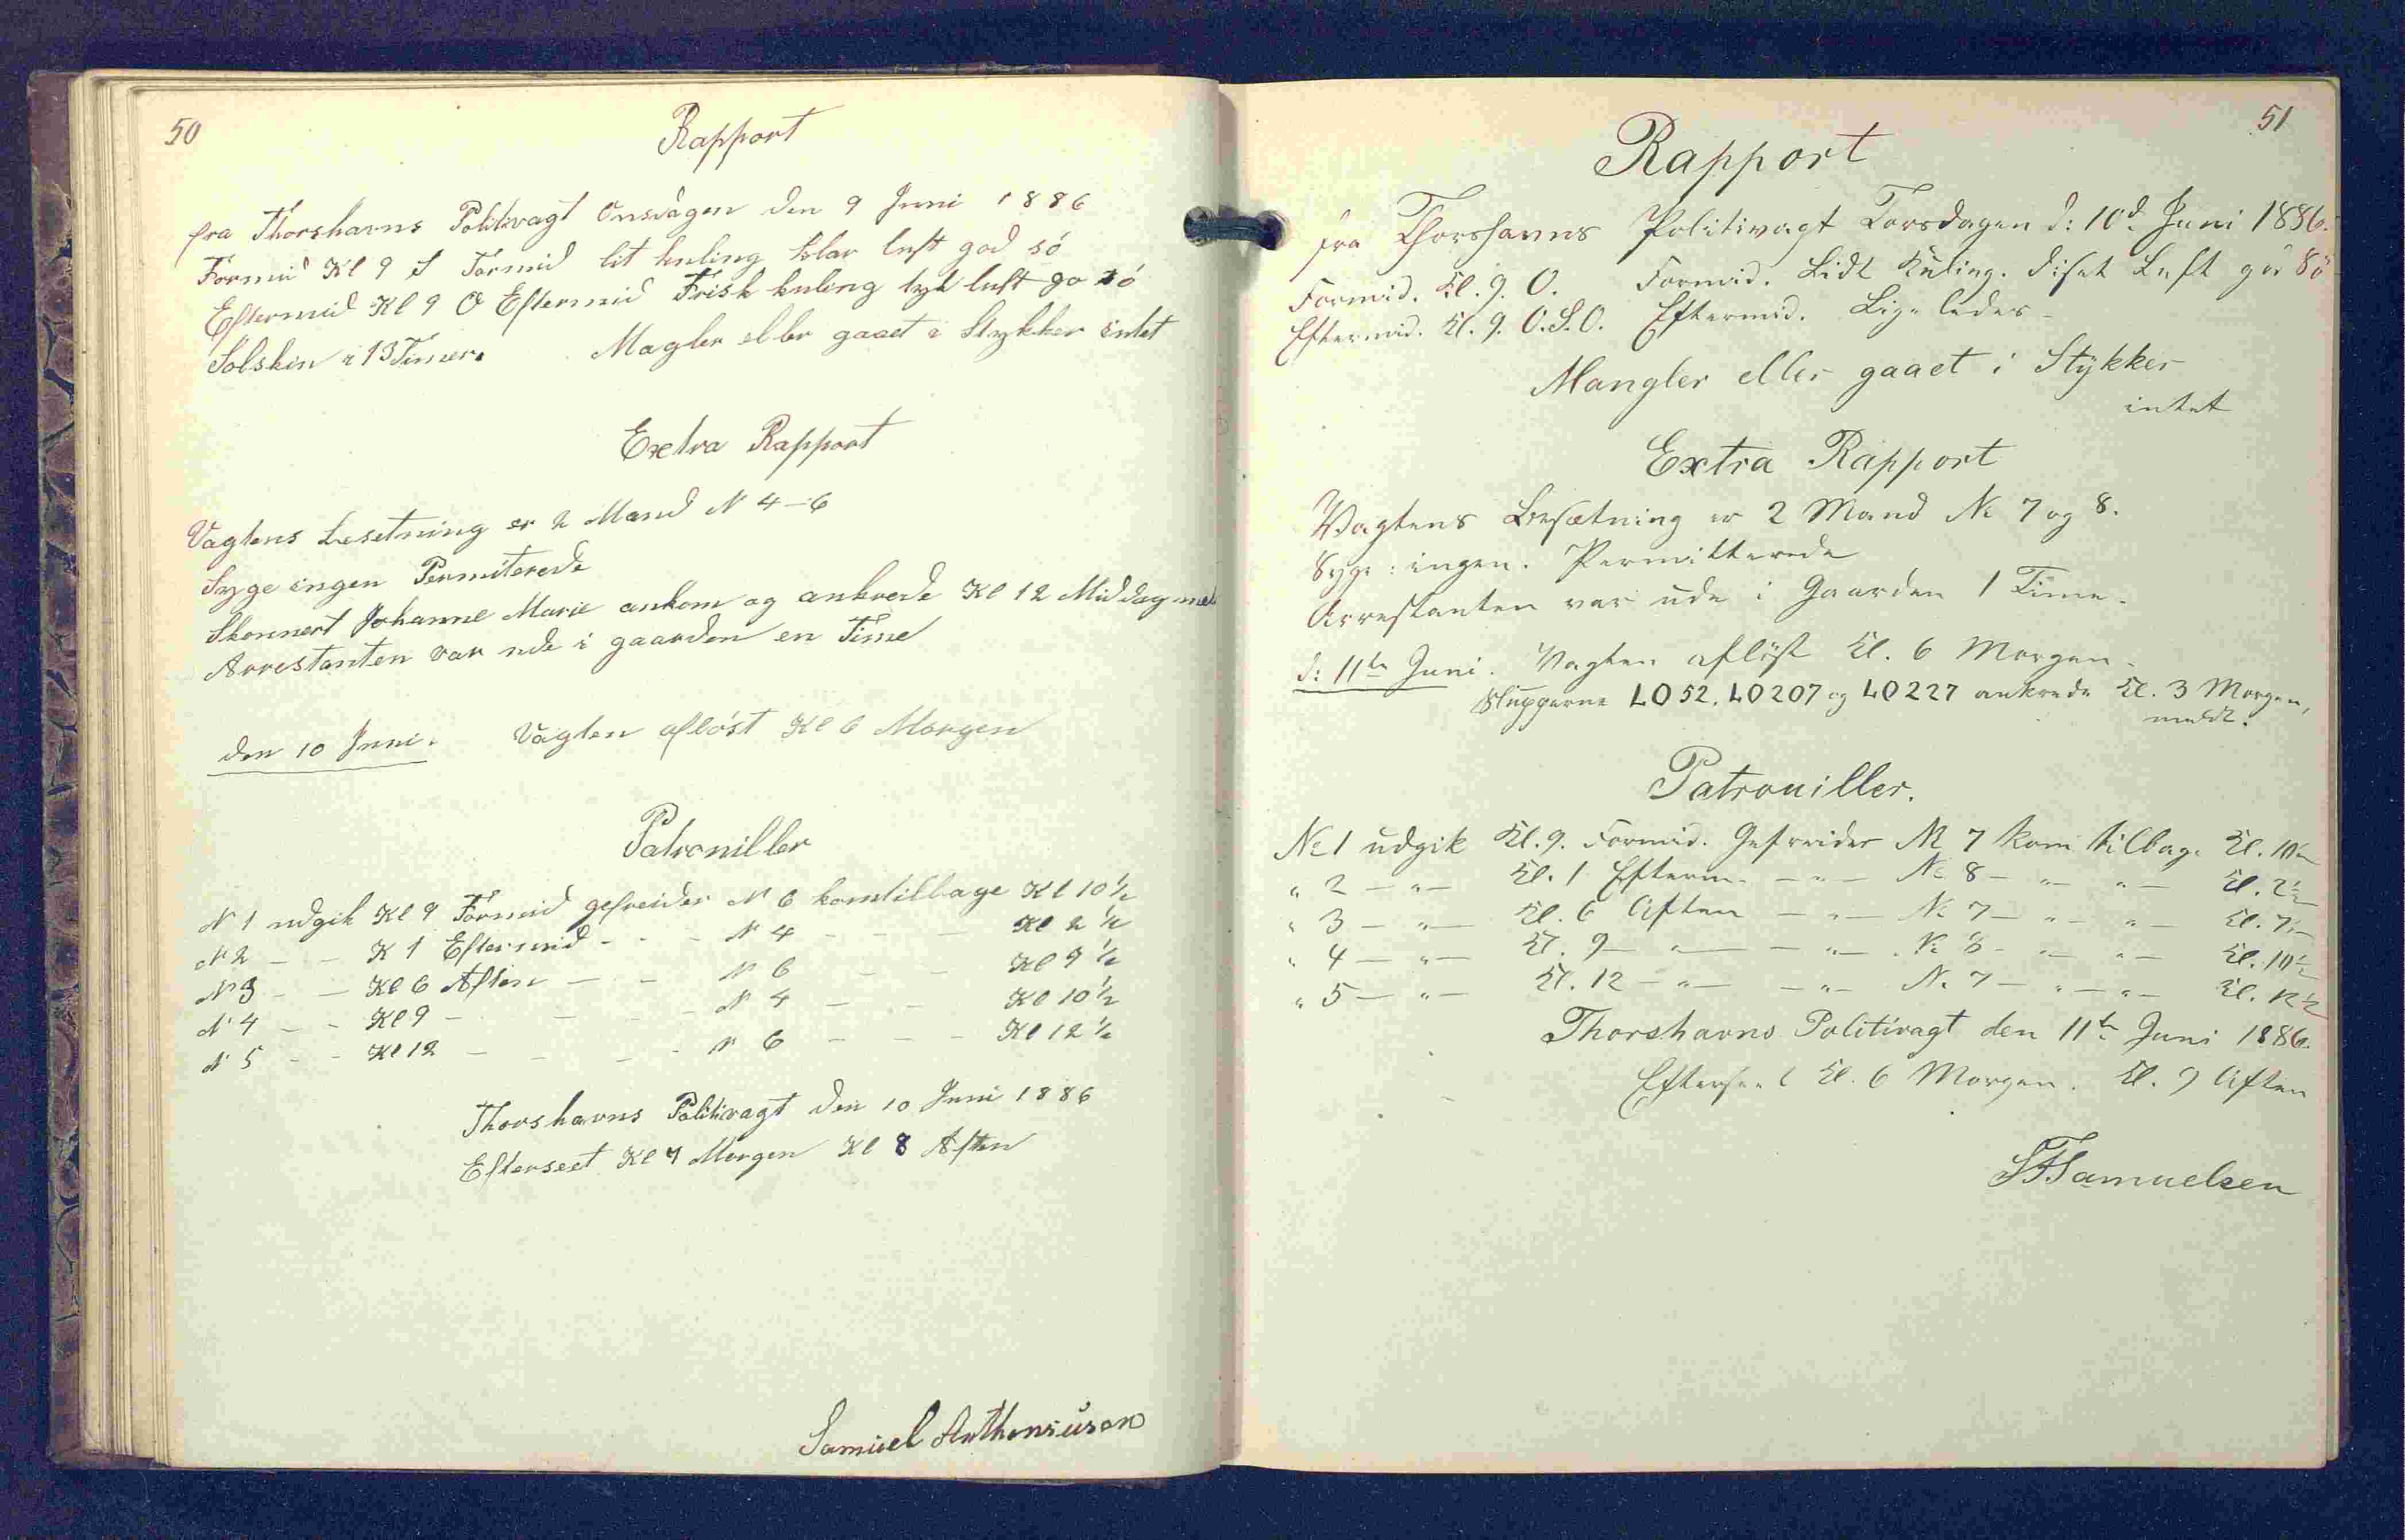 50
Rapport
fra Thorshavns Politivagt Onsdagen den 9 Juni 1886
Formid Kl 9 S Formid lit kuling klar luft god só
Eftermid Kl 9 O Eftermid Frisk kuling tyk luft go só
Solskin i 13 Timer. Magler eller gaaet i Stykker intet
Extra Rapport
Vagtens besetning er 2 Mand N 4-6
Syge ingen Permiterede
Skonnert Johanne Marie ankom og ankrede Kl 12 Middag
Arrestanten var ude i gaarden en Time
den 10 Juni. Vagten aflöst Kl 6 Morgen
Patroniller
N 1 udgik Kl 9 Formid gefreider N 6 komtilbage Kl 10½
N 2 - - K 1 Eftermid - - - N 4 - - - Kl 2½
N 3 - - Kl 6 Aften - - N 6 - - Kl 9½
N 4 - - Kl 9 - - - - N 4 - - Kl 10½
N 5 - - Kl 12 - - - - N 6 - - - Kl 12½
Thorshavns Politivagt den 10 Juni 1886
Efterseet Kl 7 Morgen Kl 8 Aften
Samuel Anthoniusen
51
Rapport
fra Thorshavns Politivagt Torsdagen d: 10d Juni 1886.
Formid. Kl. 9. O. Formid. Lidt Kuling. diset Luft god Sö
Eftermid. Kl. 9. O.S.O. Eftermid. Lige ledes -
Mangler eller gaaet i Stykker
intet
Extra Rapport
Vagtens Besætning er 2 Mand No 7 og 8.
Syge: ingen. Permitterede
Arrestanten var ude i Gaarden 1 Time.
d: 11te Juni. Vagten aflöst Kl. 6 Morgen.
Slupperne LO 52. LO 207 og LO 227 ankrede Kl. 3 Morgen,
meldt.
Patrouiller.
No 1 udgik Kl. 9. Formid. Gefreider No 7 kom tilbage Kl. 10½
" 2 - " - Kl. 1 Efterm. - " - No 8 - " - " - Kl. 2½
" 3 - " - Kl. 6 Aften - " - No 7 - " - " - Kl. 7½
" 4 - " - Kl. 9 - " - - " - No 8 - " - " - Kl. 10½
" 5 - " - Kl. 12 - " - - " - No 7 - " - " - Kl. 12½
Thorshavns Politivagt den 11te Juni 1886.
Efterseet Kl. 6 Morgen. Kl. 9 Aften
Samuelsen